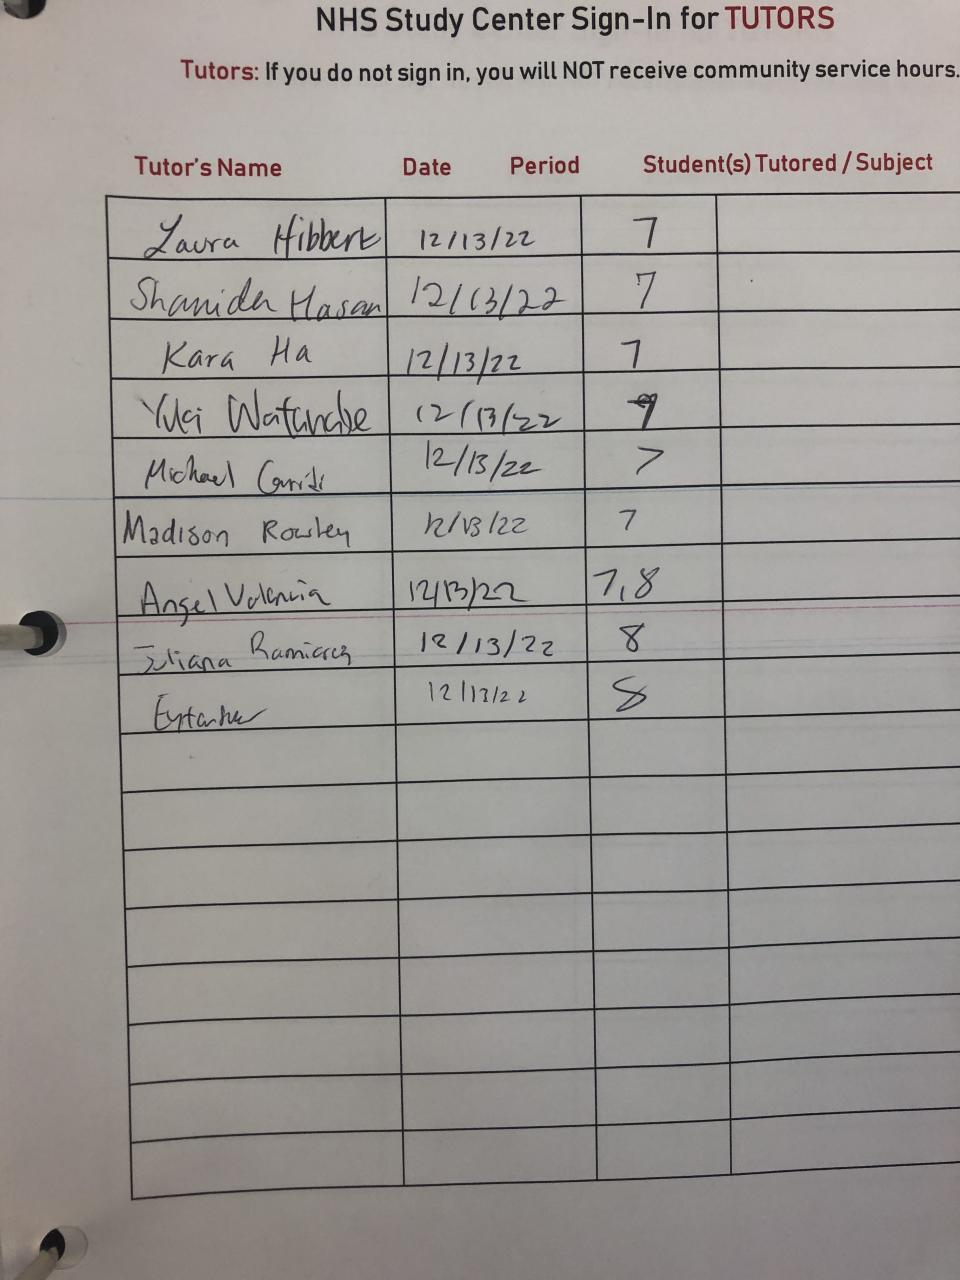 NHS Study Center Sign-In for TUTORS
Tutors: If you do not sign in, you will NOT receive community service hours.
Tutor's Name Date Period Student(s) Tutored / Subject
Laura Hibbert 12/13/22 7
Shanida Hasan 12/13/22 7
Kara Ha 12/13/22 7
Yuki Watanabe 12/13/22 7
Michael 12/13/22 7
Madison Rowley 12/13/22 7
Angel Valencia 12/13/22 7,8
Juliana Ramirez 12/13/22 8
12/13/22 8